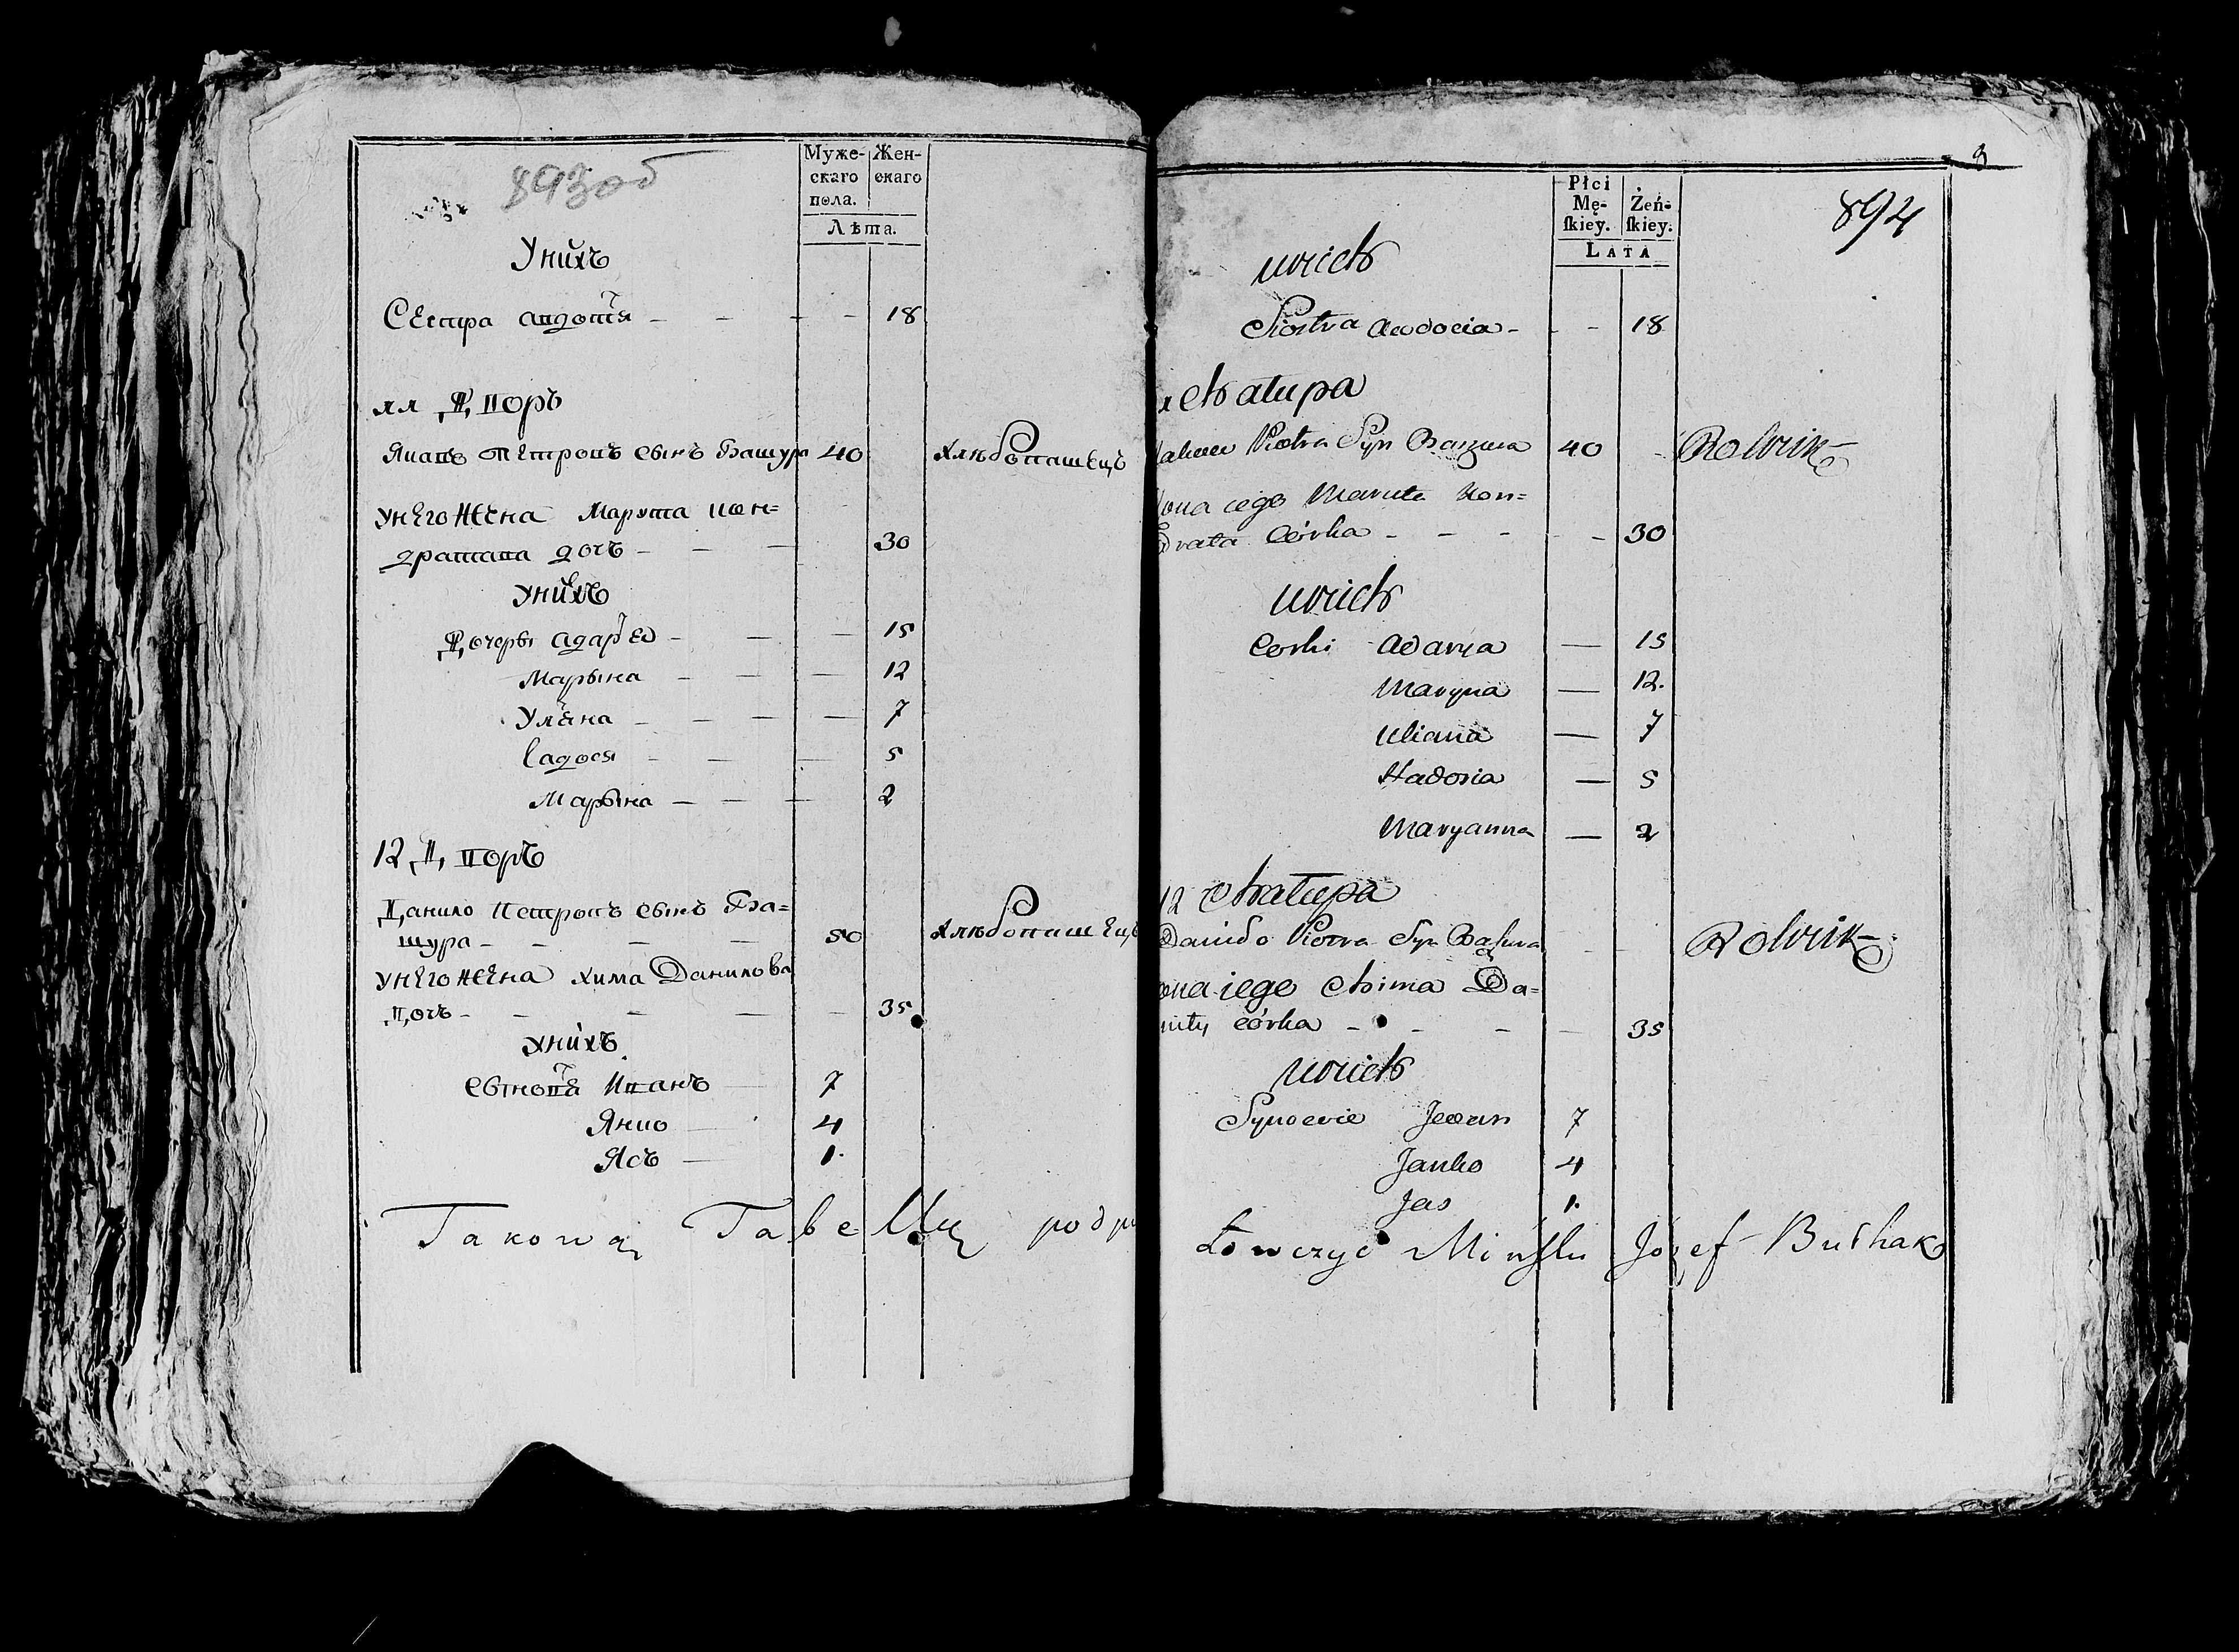 893об
Муже- Жен-
скаго скаго
пола.
Лѣта.
Унихъ
Сестра авдотїя 18
Дворъ
Якавъ Петровъ сынъ Башура 40 Хлѣбопашецъ
унего жена Марута кон=
дратава дочъ 30
унихъ
Дочеры адарїя 15
Марына 12
Уляна 7
Гадося 5
Марьяна 2
12 Дворъ
Данило Петровъ сынъ Ба=
шура 50 Хлѣбопашецъ
унего жена Хима Данилова
дочъ 35
унихъ
Сыновїя Иванъ 7
Янко 4
Ясъ 1
Takową Tabellę podp
894
Płci
Mę- Żeń-
ſkiey. ſkiey.
LATA
u nich
Siostra Awdocia 18
Chałupa
Piotra Syn Baszura 40 Rolnik
ona iego Maruta Kon=
drata Córka 30
u nich
Corki Adaryia 15
Maryna 12.
Uliana 7
Hadosia 5
Maryanna 2
12 Chałupa
Daniło Piotra Syn Baszura Rolnik
ona iego Chima Da=
niły córka 35
u nich
Synowie Jwan 7
Janko 4
Jas 1.
Łowczyc Mińſki Józef Bułhak